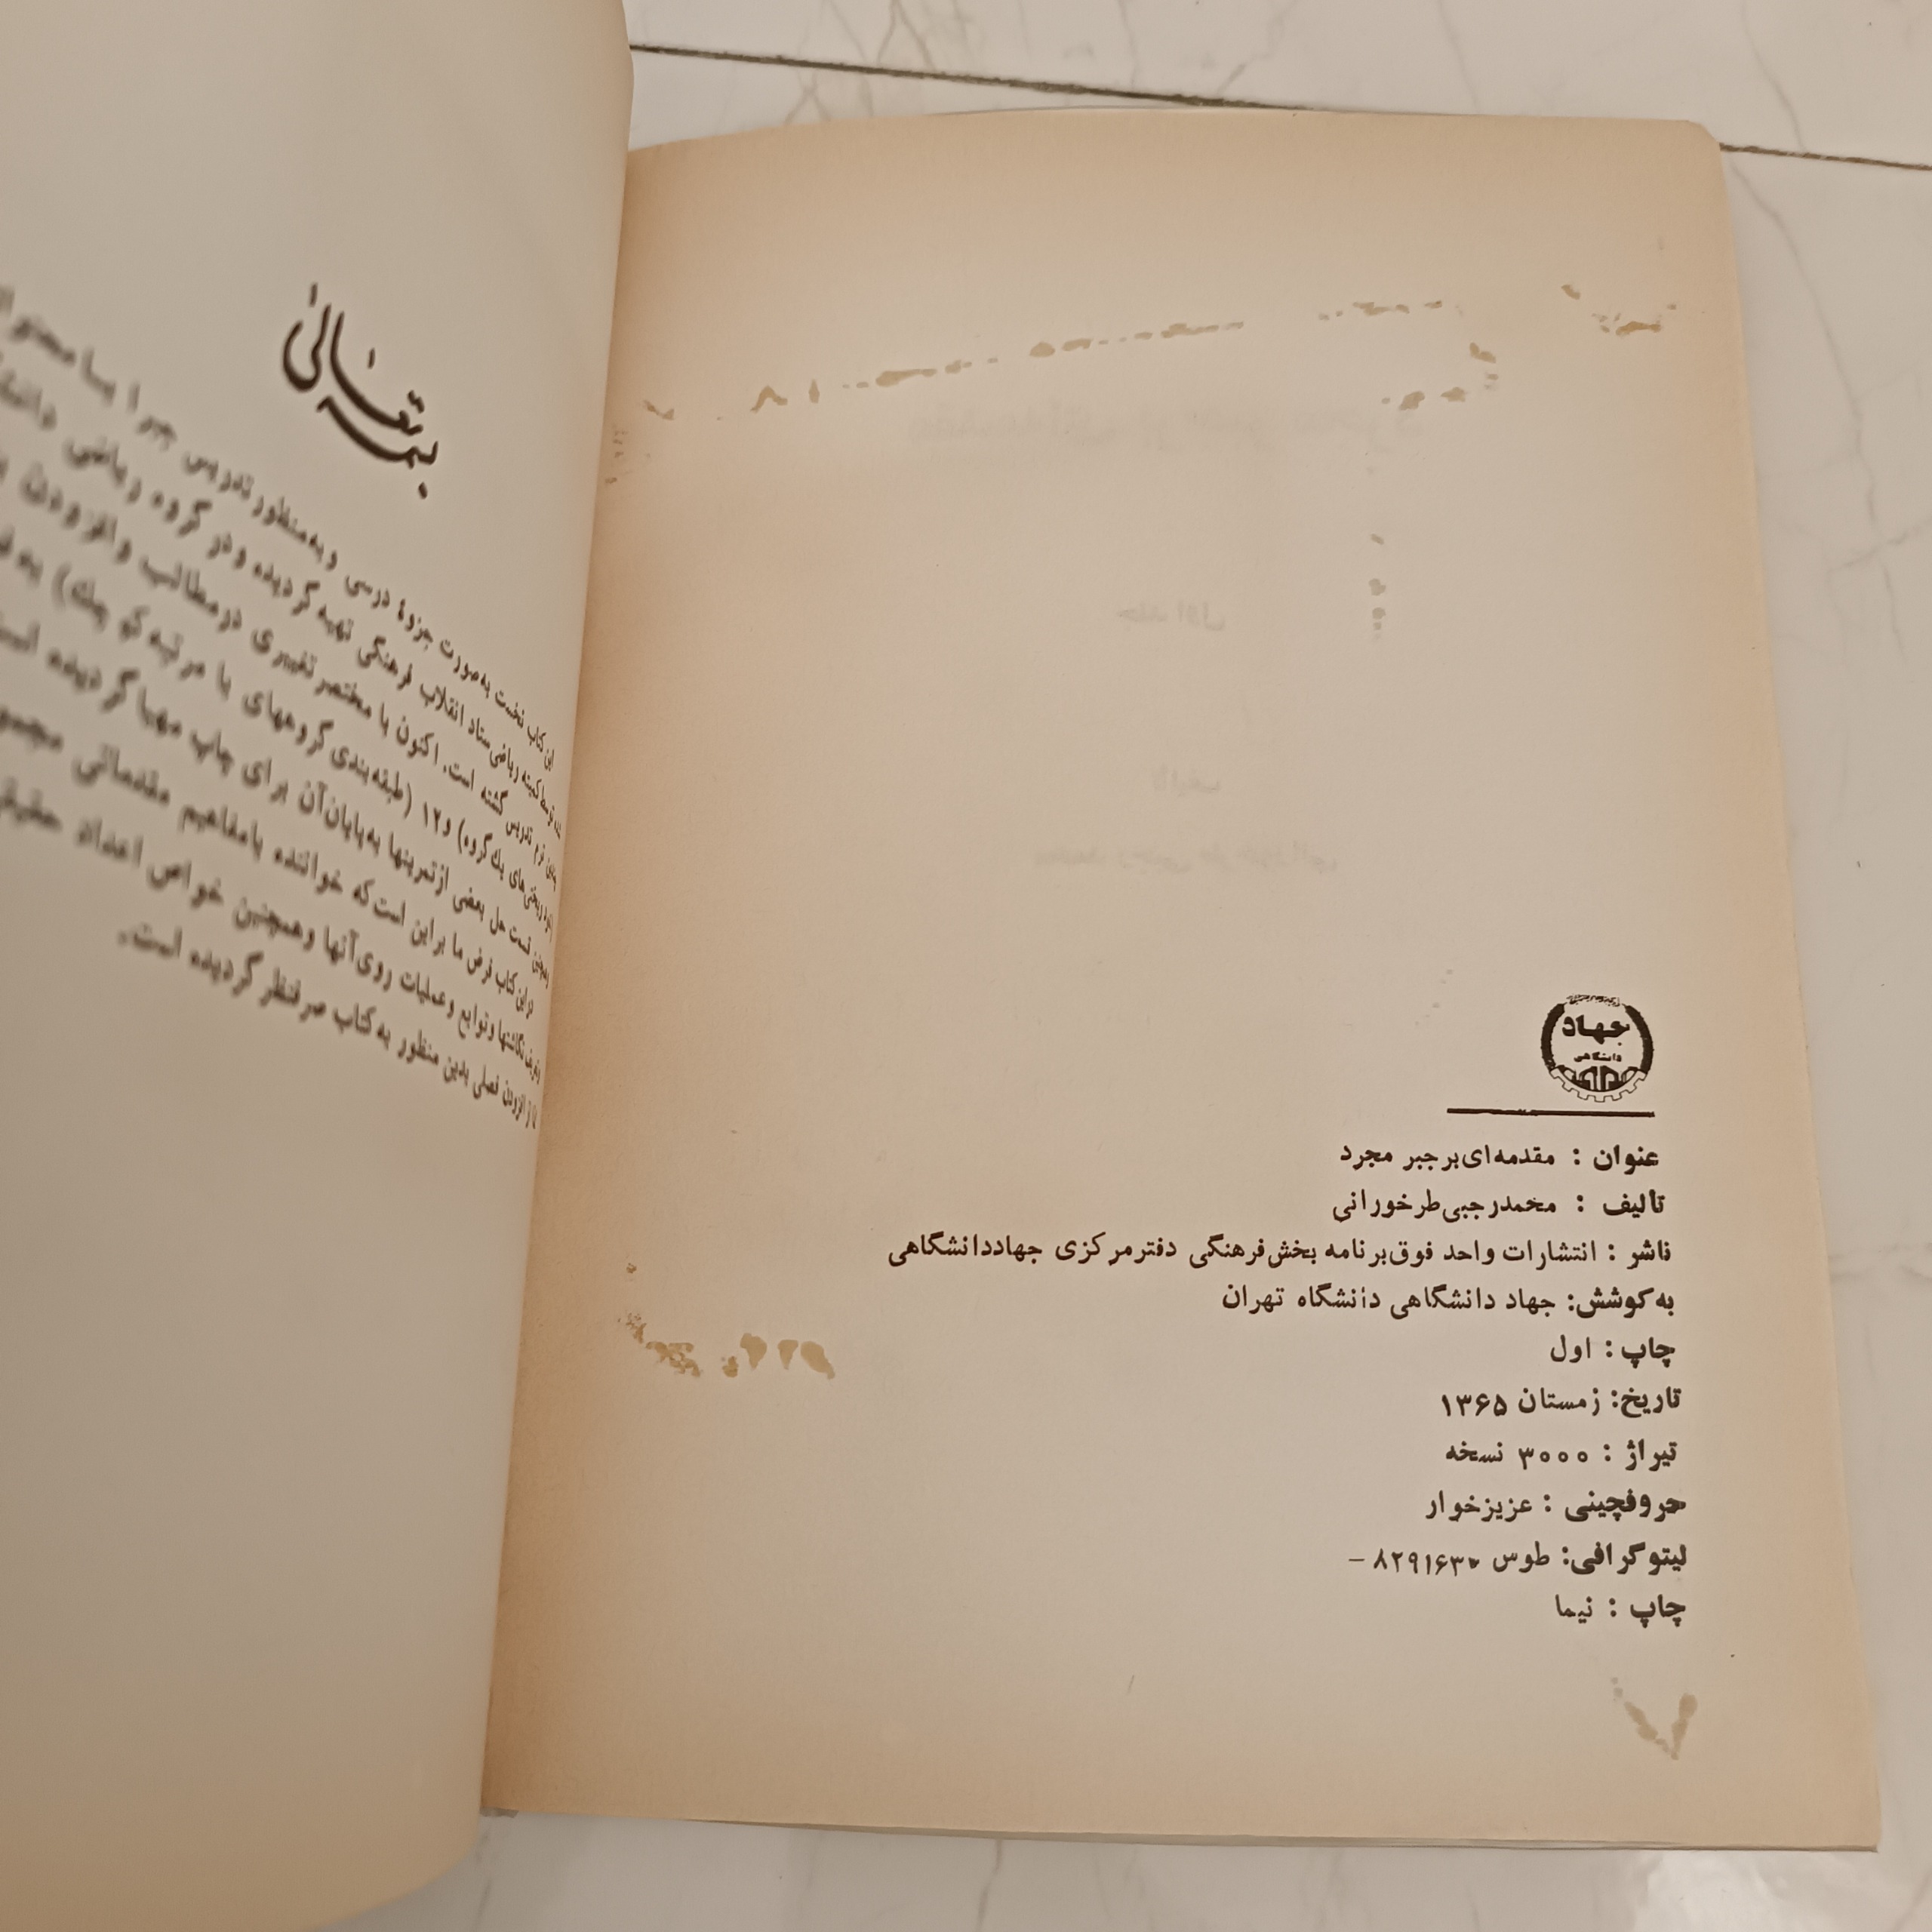 جهاد
دانشگاهی
عنوان : مقدمه‌ای‌بر جبر مجرد
تألیف : محمدرجبی‌طرخورانی
ناشر : انتشارات واحد فوق‌برنامه بخش‌فرهنگی دفترمرکزی جهاددانشگاهی
به‌کوشش: جهاد دانشگاهی دانشگاه تهران
چاپ : اول
تاریخ: زمستان ۱۳۶۵
تیراژ : ۳۰۰۰ نسخه
حروفچینی : عزیزخوار
لیتوگرافی: طوس
چاپ : نیما
بسمه تعالی
این کتاب نخست به‌صورت جزوهٔ درسی و به‌منظور تدریس جبر ۱ با
توسط کمیته ریاضی ستاد انقلاب فرهنگی تهیه گردیده و در گروه ریاضی
ترم تدریس گشته است. اکنون با مختصر تغییری در مطالب و افزودن
یک گروه) و ۱۲ (طبقه‌بندی گروههای با مرتبه کوچک)
قسمت حل بعضی از تمرینها به‌پایان‌آن برای چاپ مهیا گردیده است
در این کتاب فرض ما بر این است که خواننده بامفاهیم مقدماتی
نگاشتها و توابع و عملیات روی آنها و همچنین خواص اعداد
از افزودن فصلی بدین منظور به کتاب صرفنظر گردیده است.